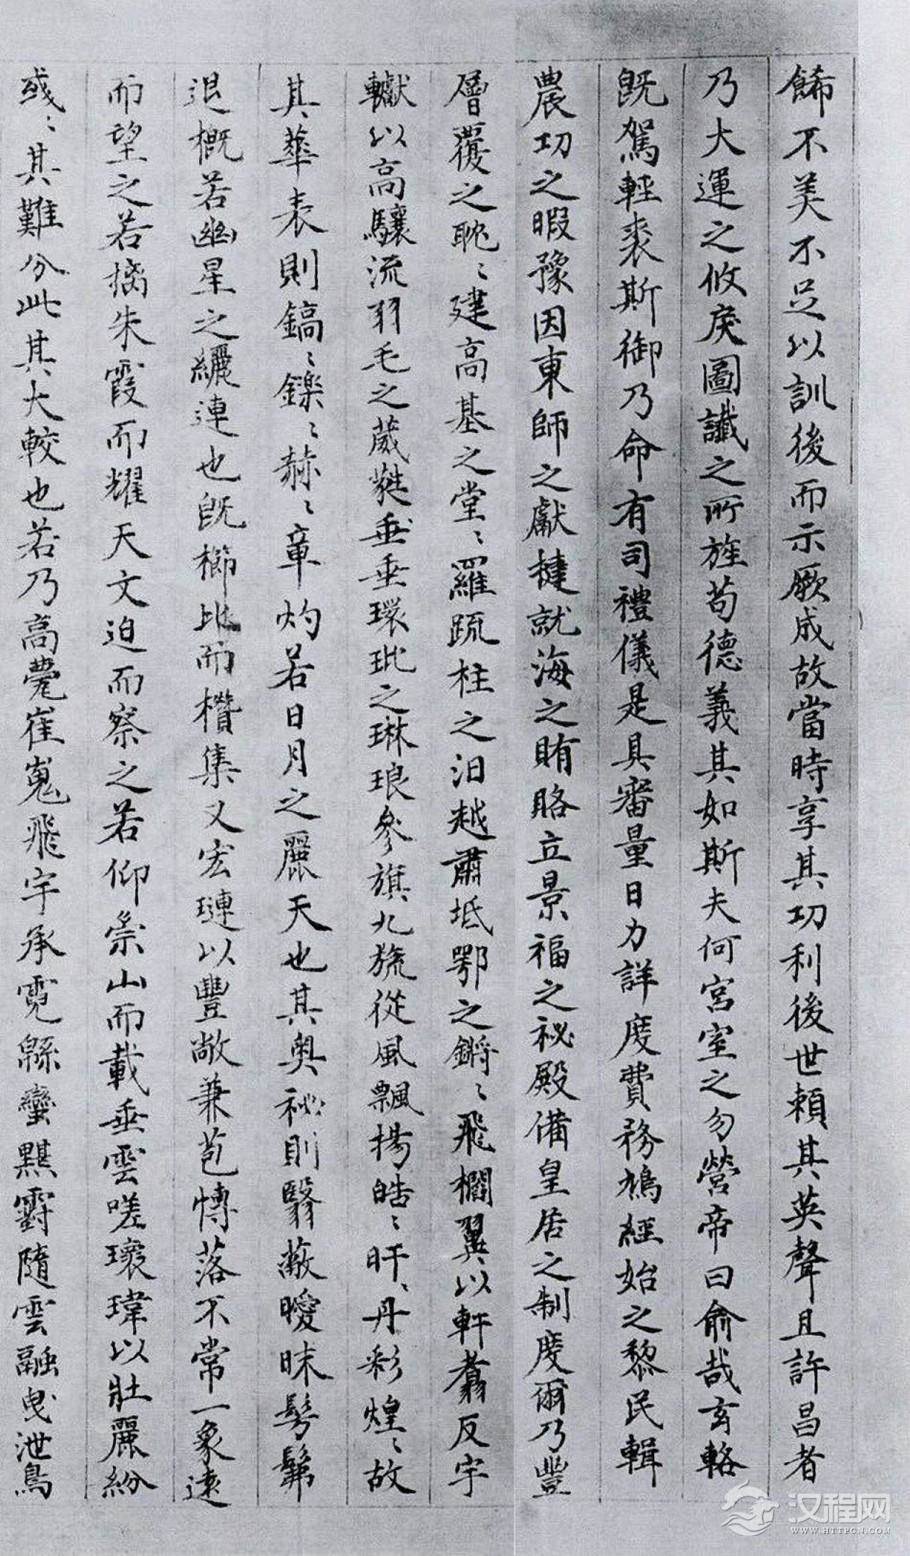 餙不美不足以訓後而示厥成故當時享其功利後世賴其英聲且許昌者
乃大運之攸戾圖讖之所旌苟德義其如斯夫何宮室之勿營帝曰俞哉玄輅
既駕輕裘斯御乃命有司禮儀是具審量日力詳度費務鳩經始之黎民輯
農功之暇豫因東師之獻捷就海之賄賂立景福之祕殿備皇居之制度爾乃豐
層覆之耽〻建高基之堂〻羅疏柱之汩越肅坻鄂之鏘〻飛櫚翼以軒翥反宇
轍以高驤流羽毛之葳蕤垂垂環玭之琳琅參旗九旒從風飄揚皓〻旰〻丹彩煌〻故
其華表則鎬〻鑠〻赫〻章灼若日月之麗天也其奧祕則翳蔽曖昧髣髴
退概若幽星之纚連也既櫛比而欑集又宏璉以豐敞兼苞慱落不常一象遠
而望之若摛朱霞而耀天文迫而察之若仰崇山而載垂雲嗟瓌瑋以壯麗紛
彧〻其難分此其大較也若乃高甍崔嵬飛宇承霓緜蠻黮䨴隨雲融曳泄鳥
汉程网
WWW.HTTPCN.COM